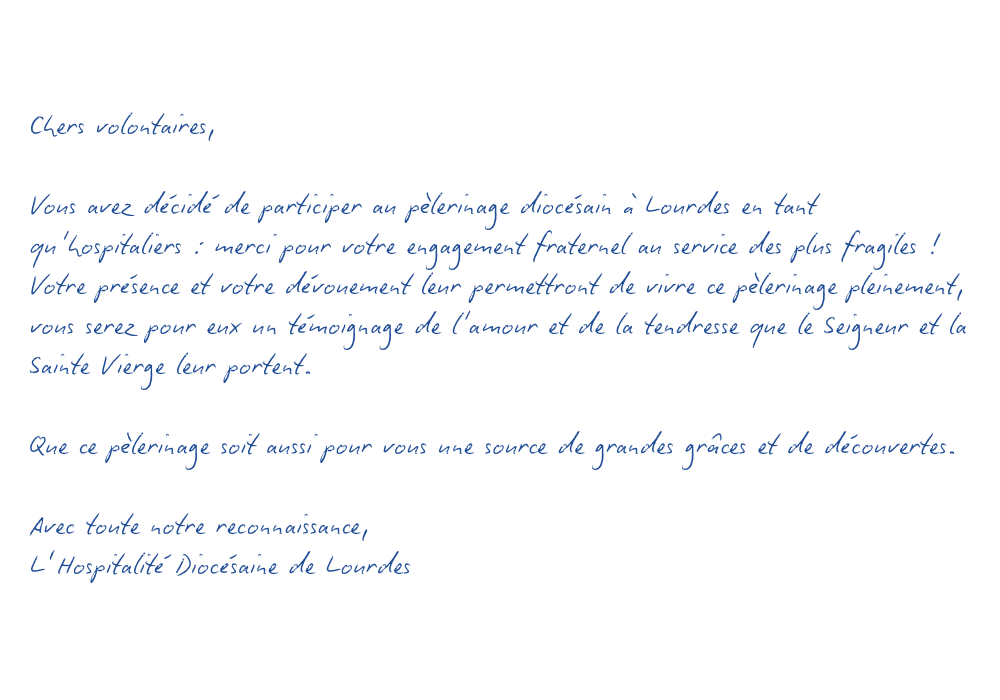 Chers volontaires,
Vous avez décidé de participer au pèlerinage diocésain à Lourdes en tant
qu'hospitaliers : merci pour votre engagement fraternel au service des plus fragiles !
Votre présence et votre dévouement leur permettront de vivre ce pèlerinage pleinement,
vous serez pour eux un témoignage de l'amour et de la tendresse que le Seigneur et la
Sainte Vierge leur portent.
Que ce pèlerinage soit aussi pour vous une source de grandes grâces et de découvertes.
Avec toute notre reconnaissance,
L'Hospitalité Diocésaine de Lourdes